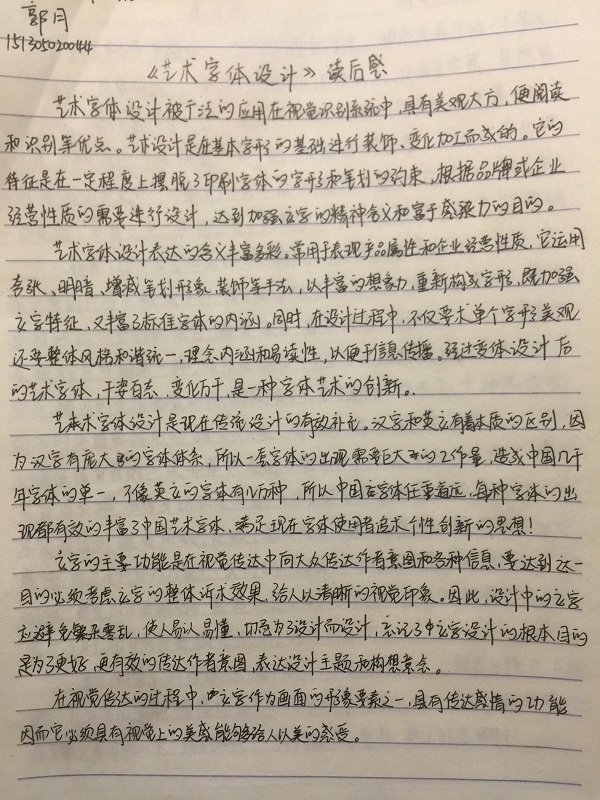 郭月
151305020044
《艺术字体设计》读后感
艺术字体设计被广泛的应用在视觉识别系统中，具有美观大方，便阅读
和识别等优点。艺术设计是在基本字形的基础进行装饰、变化加工而成的。它的
特征是在一定程度上摆脱了印刷字体的字形和笔划的约束，根据品牌或企业
经营性质的需要进行设计，达到加强文字的精神含义和富于感染力的目的。
艺术字体设计表达的含义丰富多彩。常用于表现产品属性和企业经营性质，它运用
夸张、明暗、增减笔划形象、装饰等手法，以丰富的想象力，重新构成字形，既加强
文字特征，又丰富了标准字体的内涵。同时，在设计过程中，不仅要求单个字形美观
还要整体风格和谐统一，理念内涵和易读性，以便于信息传播。经过变体设计后
的艺术字体，千姿百态，变化万千，是一种字体艺术的创新。
艺术字体设计是现在传统设计的有效补充。汉字和英文有着本质的区别，因
为汉字有庞大的字体体系，所以一套字体的出现需要巨大的工作量，造成中国几千
年字体的单一，不像英文的字体有几万种，所以中国字体任重道远，每种字体的出
现都有效的丰富了中国艺术字体，满足现在字体使用者追求个性创新的思想！
文字的主要功能是在视觉传达中向大众传达作者意图和各种信息，要达到这一
目的必须考虑文字的整体诉求效果，给人以清晰的视觉印象。因此，设计中的文字
应避免繁杂零乱，使人易认易懂，切忌为了设计而设计，忘记了文字设计的根本目的
是为了更好，更有效的传达作者意图，表达设计主题和构想意念。
在视觉传达的过程中，文字作为画面的形像要素之一，具有传达感情的功能
因而它必须具有视觉上的美感能够给人以美的感受。